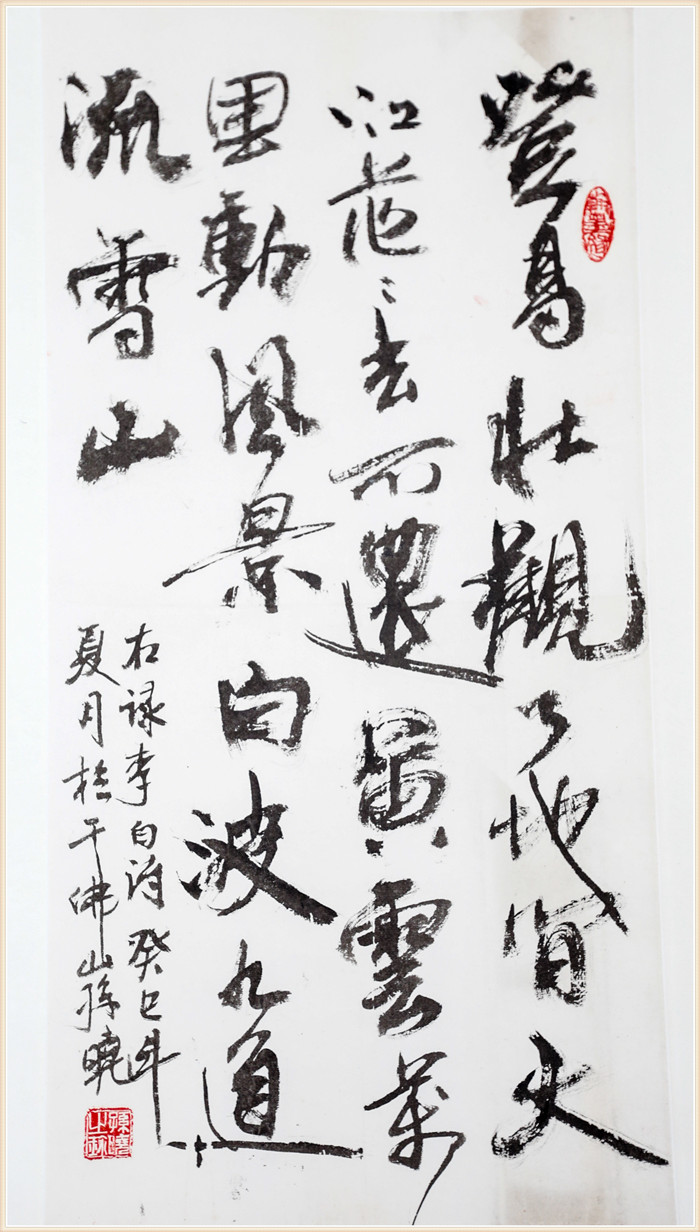 登高壮觀天地间大
江茫〻去不還黄雲萬
里動風景白波九道
流雪山
右録李白詩癸巳年
夏月於千佛山孫曉